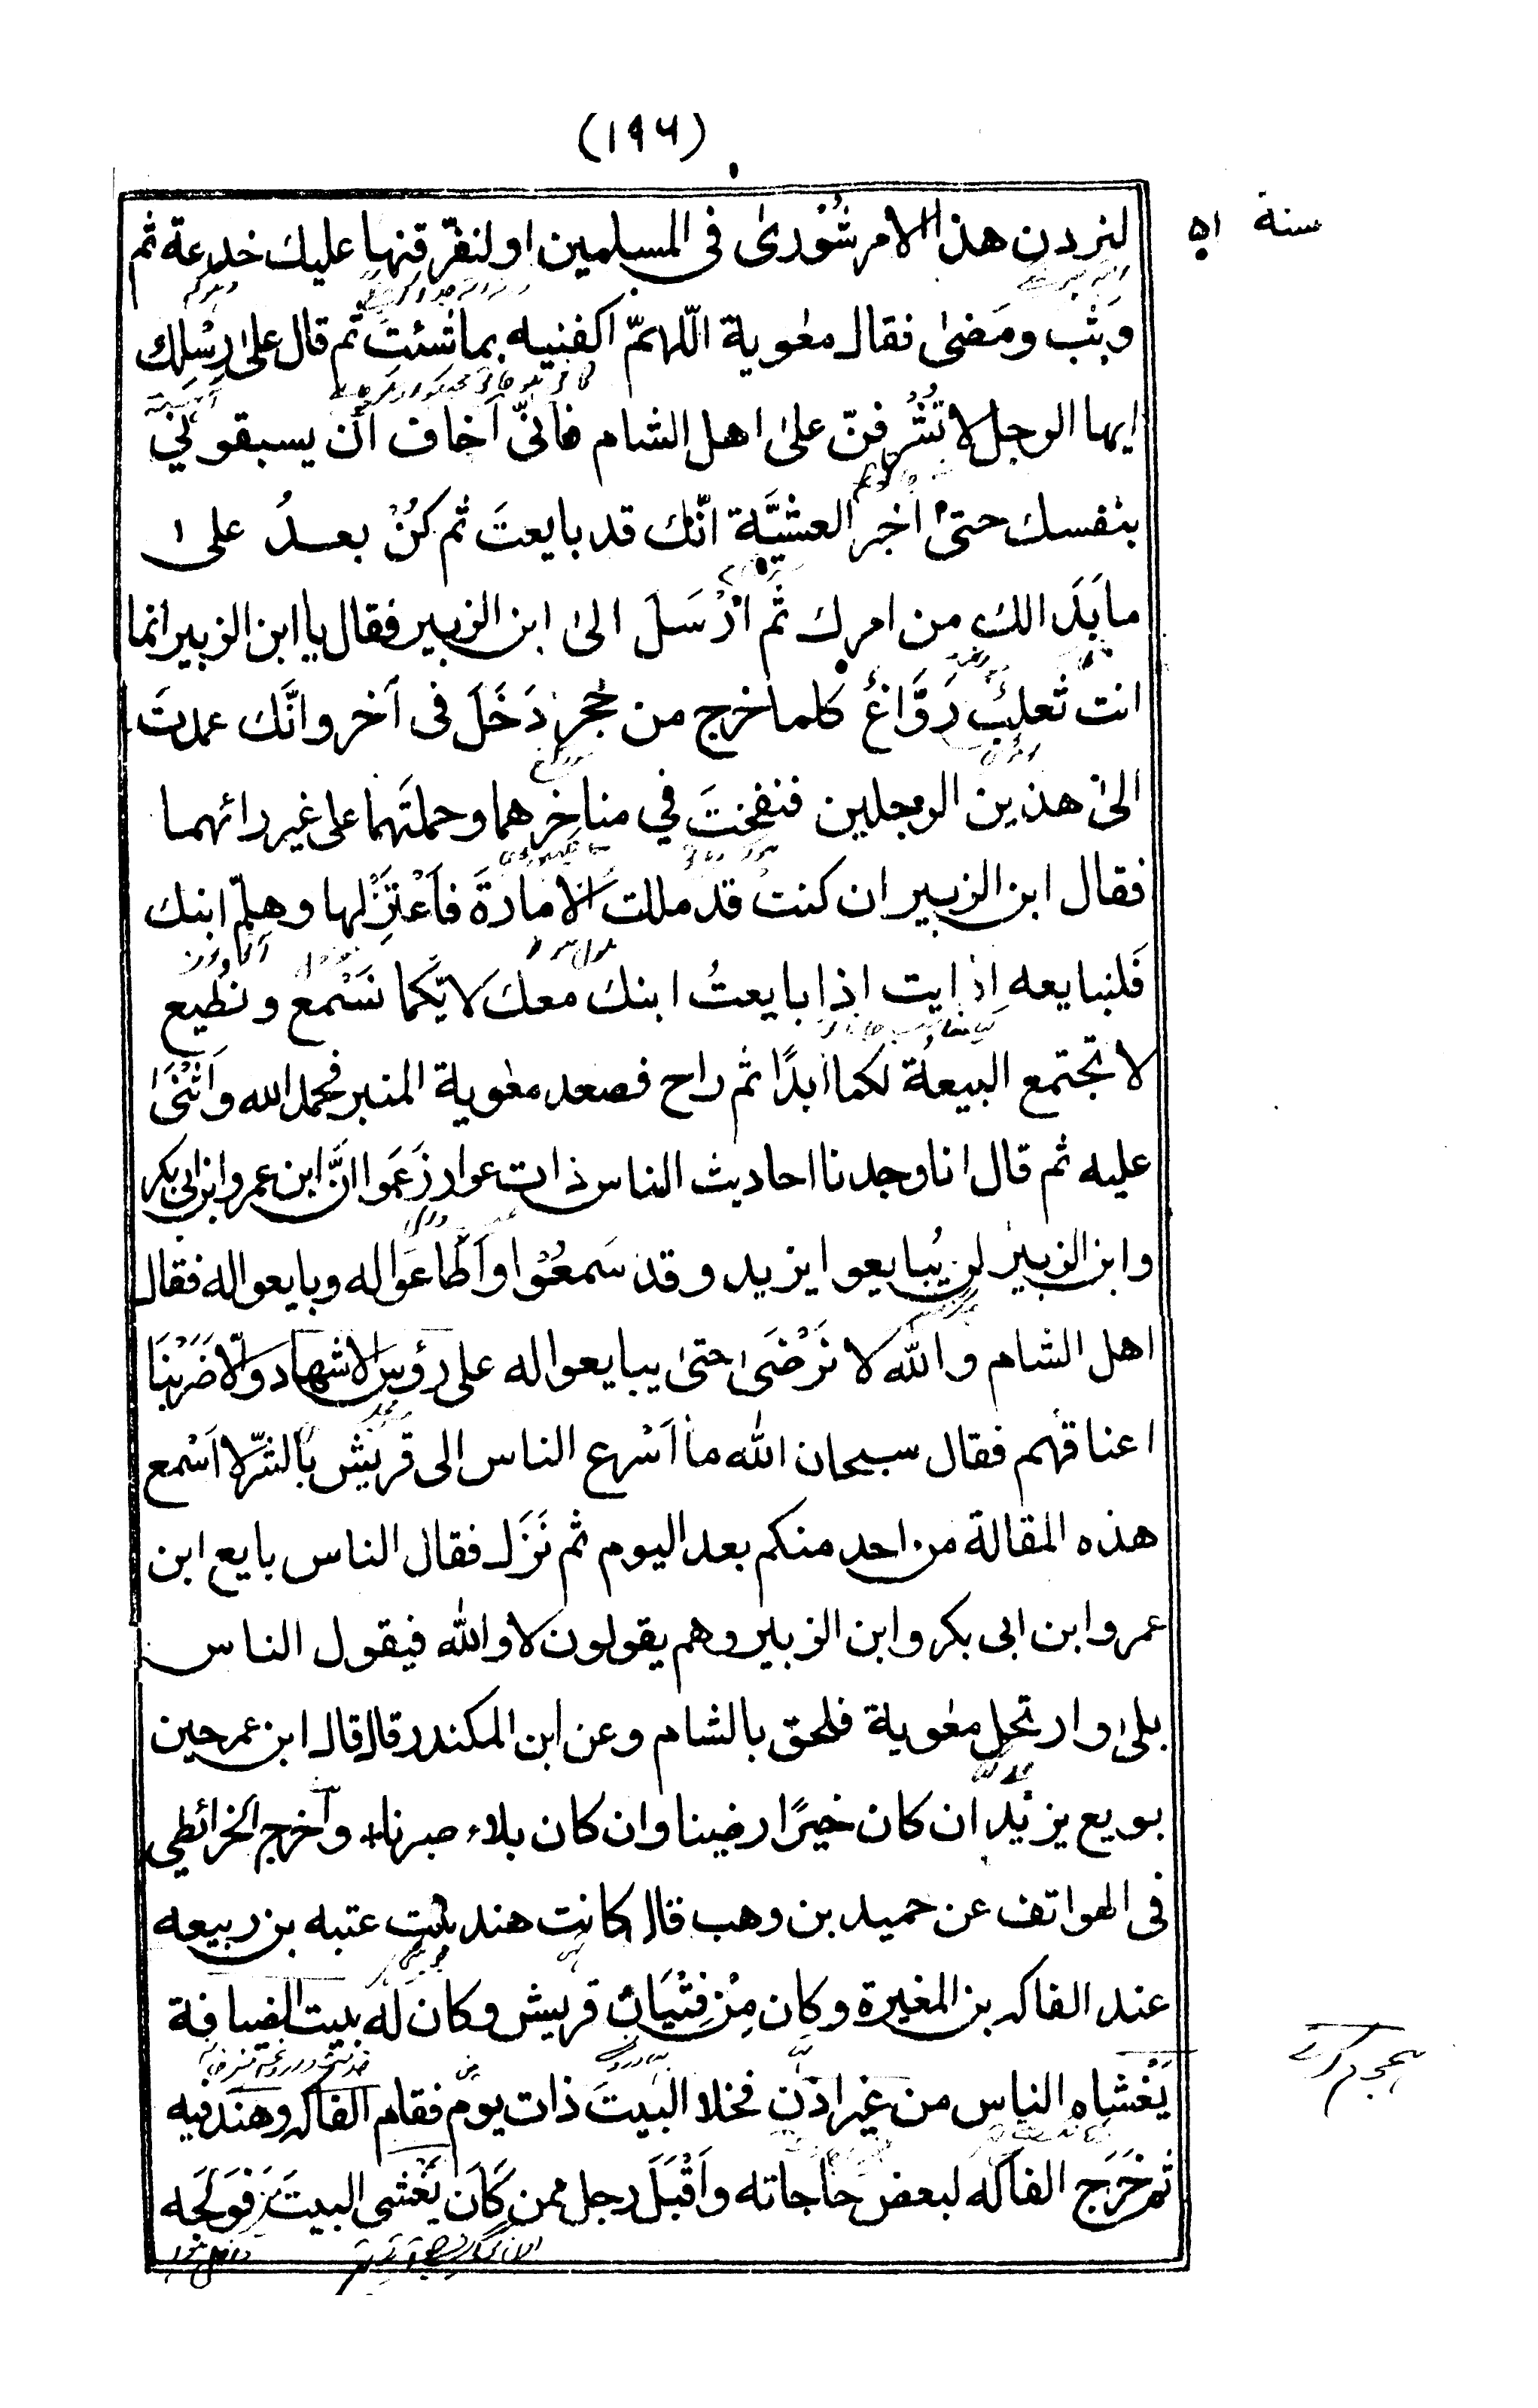 (۱۹۶)
سنة ۵۱
لنردن هذا الامر شُوْرىٰ فى المسلمين او لنفرقنها عليك خدعة ثم
وثب ومَضىٰ فقال معٰوية اللّٰهمّ اكفنيه بما شئتَ ثم قال علىٰ رِسْلِك
ايها الرجل لا تُشْرِفنّ علىٰ اهل الشام فانىّ اخاف ان يسبقونى
بنفسك حتىٰ اخبر العشيَّة انّك قد بايعتَ ثم كُنْ بعدُ على
ما بَدَا لك من امرك ثم اَرْسَلَ الىٰ ابن الزبير فقال يا ابن الزبير انما
انت ثعلبٌ رَوَّاغٌ كلما خرج من جحرٍ دَخَلَ فى آخر وانَّك عمدتَ
الىٰ هذين الرجلين فنفختَ في مناخِرهما وحملتَهما على غير رائهما
فقال ابن الزبير ان كنتَ قد مللت الامارةَ فاَعْتَزِلْها وهلمّ ابنك
فَلنبايعه اذا بايعتُ ابنك معك لايّكما نَسْمع ونطيع
لا تجتمع البيعةُ لكما ابدًا ثم راح فصعد معٰوية المنبر فحمد الله واَثْنَىٰ
عليه ثم قال انا وجدنا احاديث الناس ذات عوار زَعَمَوا انَّ ابن عمر وابن ابى بكر
وابن الزبير لن يُبايعوا يزيد وقد سَمعُوْا واَطَاعَوا له وبايعوا له فقال
اهل الشام واللّٰه لا نَرْضَى حتىٰ يبايعوا له على رؤس الاشهاد والّا ضَرَبْنَا
اعناقهم فقال سبحان اللّٰه ما اَسْرع الناس الى قريش بالشرّ لا اَسْمع
هذه المقالة من احد منكم بعد اليوم ثم نَزَلَ فقال الناس بايع ابن
عمر وابن ابى بكر وابن الزبير وهم يقولون لا واللّٰه فيقول الناس
بلىٰ وارتحل معٰوية فلحق بالشام وعن ابن المكندر قال قال ابن عمر حين
بويع يزيد ان كان خيرًا رضينا وان كان بلاء صبرنا* واَخرج الخرائطي
فى الهواتف عن حميد بن وهب قال كانت هند بنت عتبه بن ربيعه
عند الفاكه بن المغيرة وكان مِنْ فِتْيَانِ قريش وكان له بيت الضيافة
يَغْشاه الناس من غير اذن فخلا البيتَ ذات يوم فقام الفاكه وهند فيه
ثم خَرَج الفاكه لبعض حاجاته واَقْبَلَ رجل ممن كَانَ يَغْشى البيتَ فَوَلَجَه